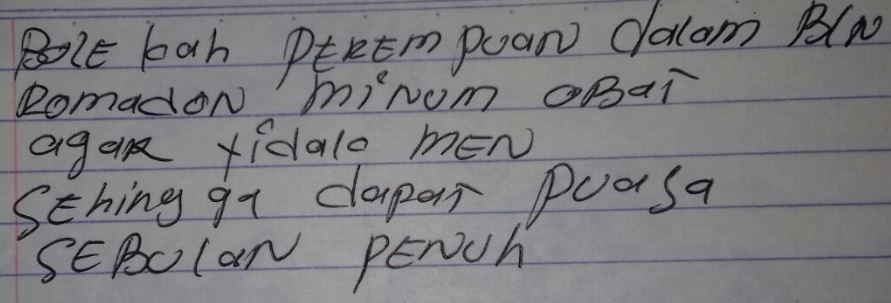 BOLE kah PEREMPUAN dalam BLN
ROMADON MINUM OBAT
agar tidak MEN
SEhingga dapat puasa
SEBULAN PENUh